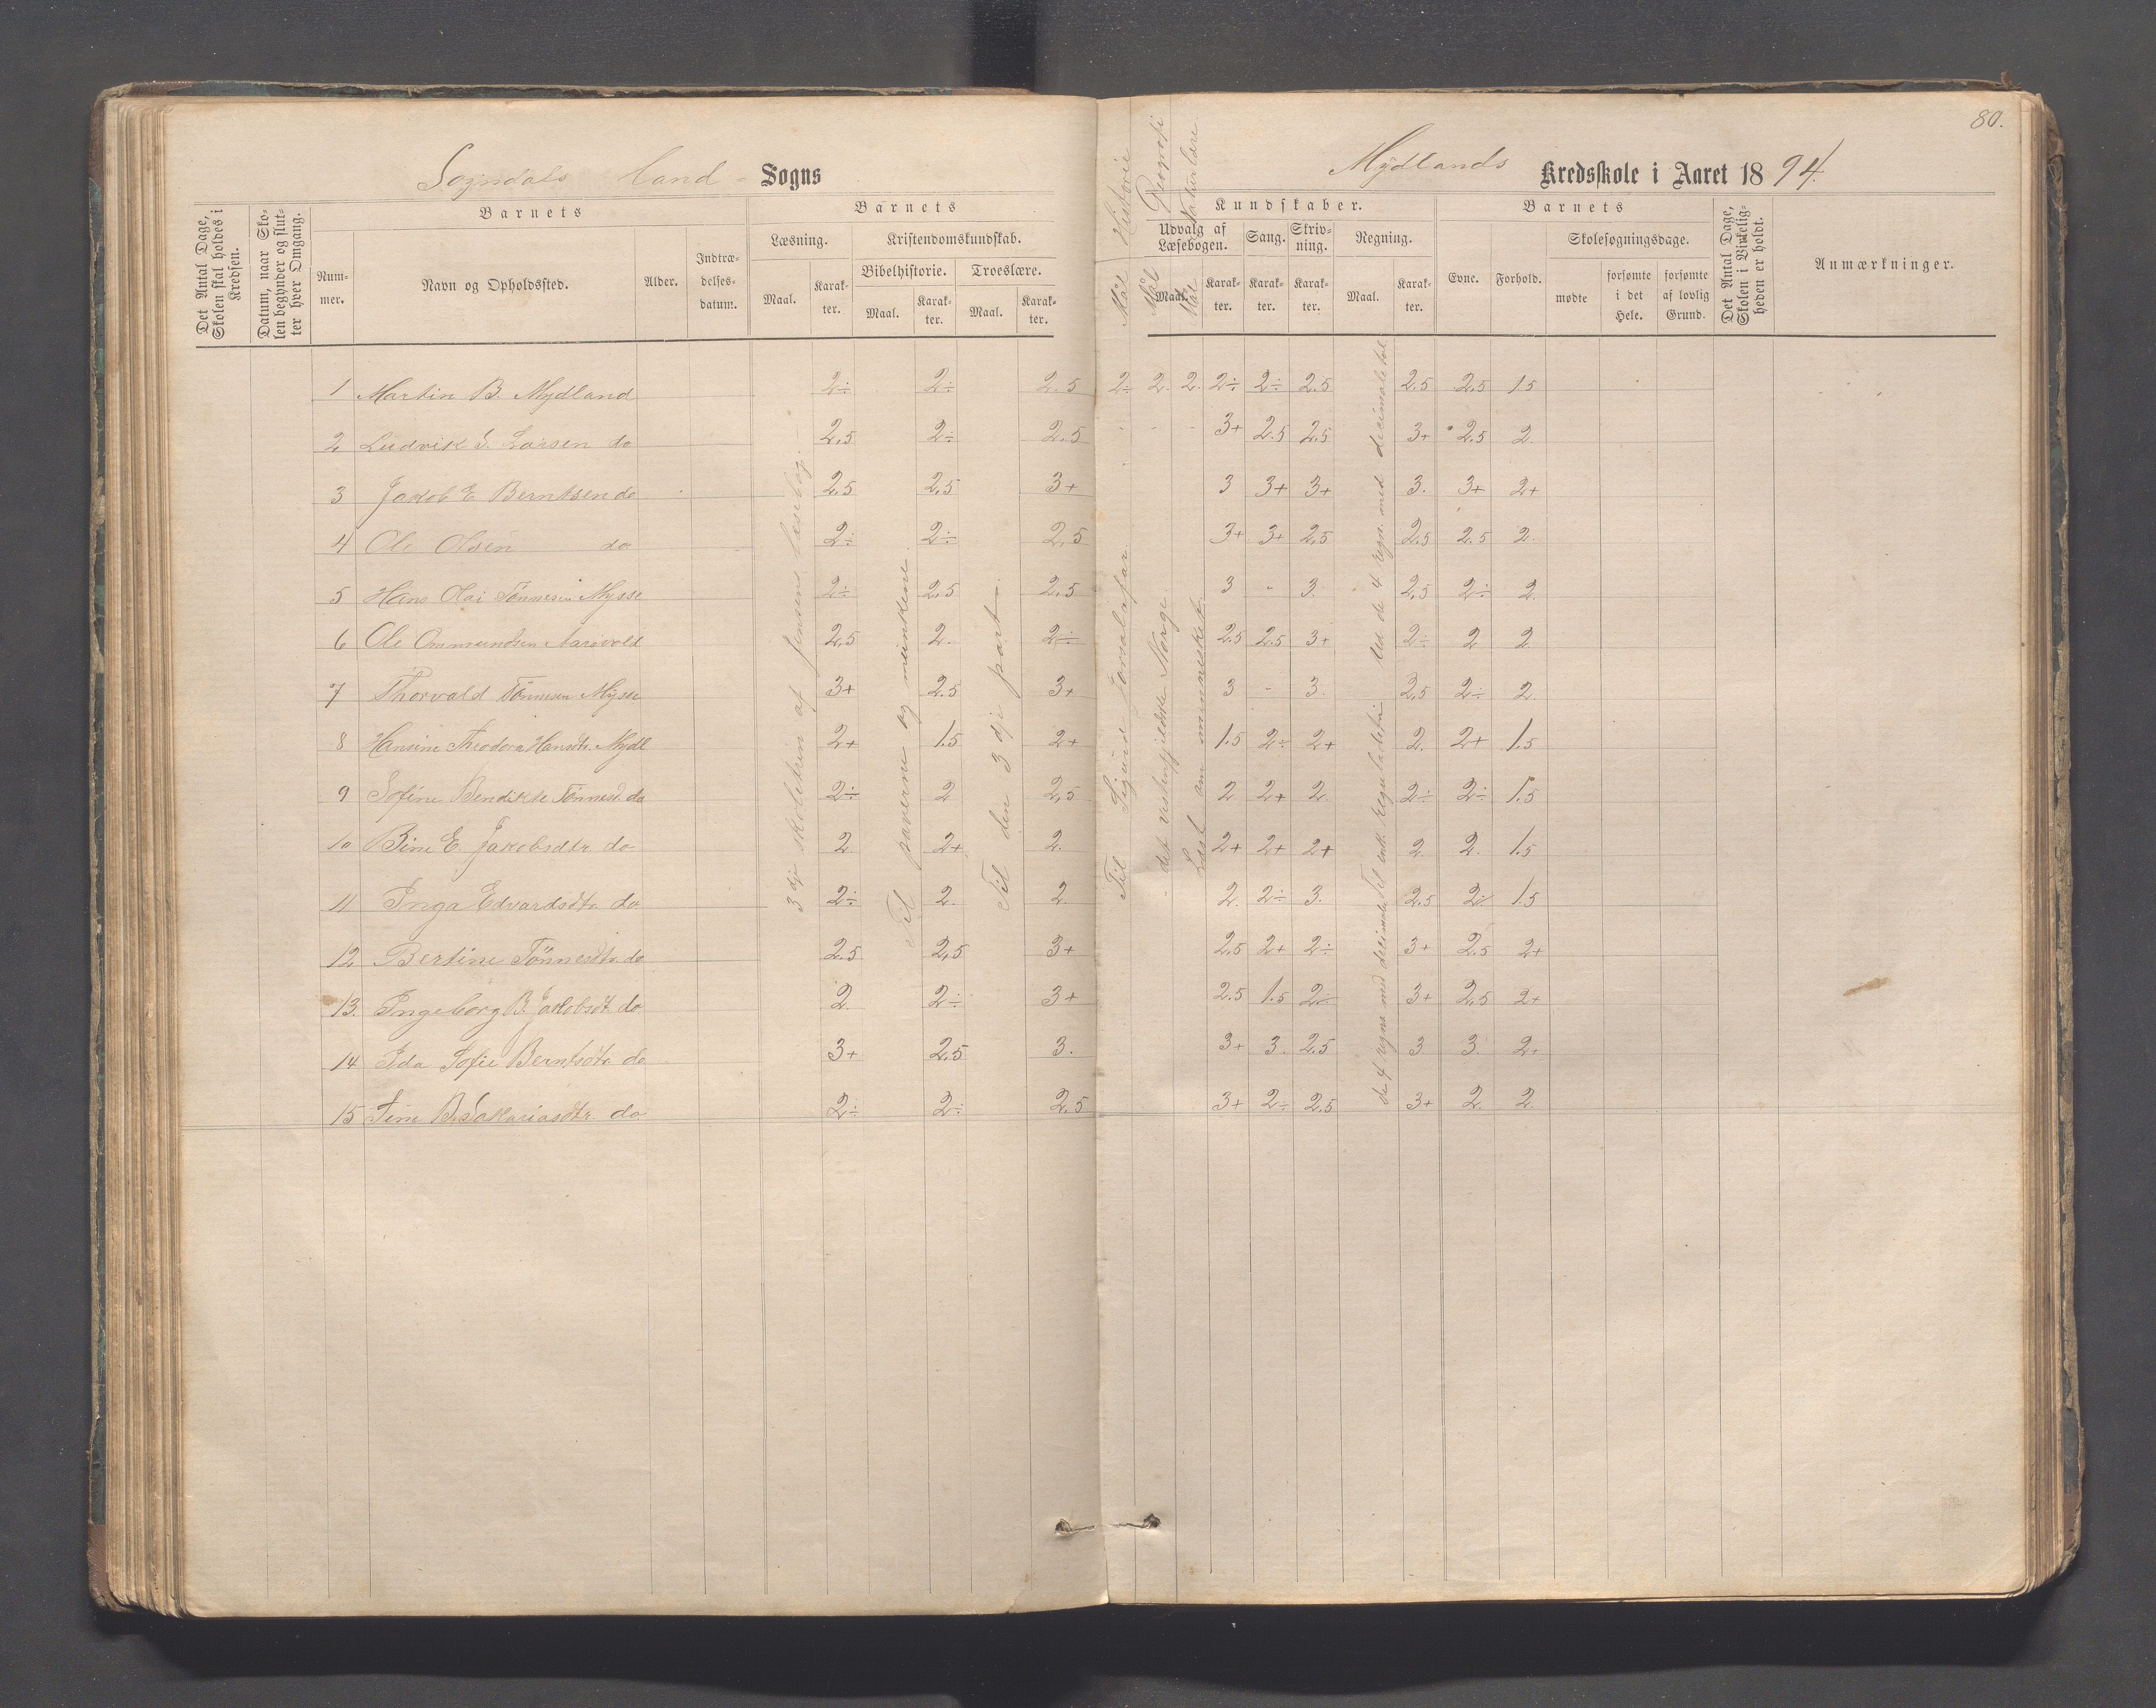 80.
Sogndals land - Sogns
Mydlands Kredsskole i Aaret 1894.
Det Antal Dage, Skolen skal holdes i Kredsen.
Datum, naar Skolen begynder og slutter hver Omgang.
Barnets
Nummer.
Navn og Opholdssted.
Alder.
Indtrædelsesdatum.
Barnets
Læsning.
Maal.
Karakter.
Kristendomskundskab.
Bibelhistorie.
Maal.
Karakter.
Troeslære.
Maal.
Karakter.
Mål Historie
Mål Geografi
Mål Naturlære
Kundskaber.
Udvalg af Læsebogen.
Maal.
Karakter.
Sang.
Karakter.
Skrivning.
Karakter.
Regning.
Maal.
Karakter.
Barnets
Evne.
Forhold.
Skolesøgningsdage.
mødte
forsømte i det Hele.
forsømte af lovlig Grund.
Det Antal Dage, Skolen i Virkeligheden er holdt.
Anmærkninger.
1 Martin B. Mydland 2÷ 2÷ 2.5 2÷ 2. 2. 2÷ 2÷ 2.5 2.5 2.5 1.5
2 Ludvik S. Larsen do 2,5 2÷ 2.5 3+ 2.5 2,5 3+ 2.5 2.
3 Jakob E Berntsen do 2.5 2,5 3+ 3 3+ 3+ 3. 3+ 2+
4 Ole Olsen do 2÷ 2÷ 2,5 3+ 3+ 2,5 2,5 2.5 2.
5 Hans Olai Tönnesen Mysse 2÷ 2,5 2,5 3 - 3. 2,5 2÷ 2
6 Ole Ommundsen Aarsvold 2,5 2. 2÷ 2.5 2.5 3+ 2÷ 2 2
7 Thorvald Tönnesen Mysse 3+ 2.5 3+ 3 - 3. 2,5 2÷ 2.
8 Hansine Theodora Hansdtr. Mydl 2+ 1.5 2+ 1.5 2÷ 2+ 2. 2+ 1.5
9 Sofine Bendikte Tönnesd. do 2÷ 2 2,5 2 2+ 2 2÷ 2÷ 1.5
10 Bine E. Jakobsdtr do 2. 2+ 2. 2+ 2+ 2+ 2 2. 1.5
11 Inga Edvardsdtr do 2÷ 2. 2. 2. 2÷ 3. 2.5 2÷ 1.5
12 Bertine Tönnesdtr. do 2.5 2,5 3+ 2.5 2+ 2÷ 3+ 2.5 2+
13. Ingeborg B. Jakobsdt do 2. 2÷ 3+ 2.5 1.5 2÷ 3+ 2,5 2+
14 Ida Sofie Berntsdtr do 3+ 2.5 3. 3+ 3. 2.5 3 3. 2+
15 Tine B. Sakariasdtr. do 2÷ 2÷ 2.5 3+ 2÷ 2.5 3+ 2. 2.
3dje skoletrin af Jensens læsebog.
Til paverne og munkene.
Til den 3dje part
Til Sigurd Jorsalafar
det vestenfjeldske Norge.
Læst om mennesket.
de 4 regne med decimaltal Til enk. Reguladetri
Ud de 4 regn. med decimaltal